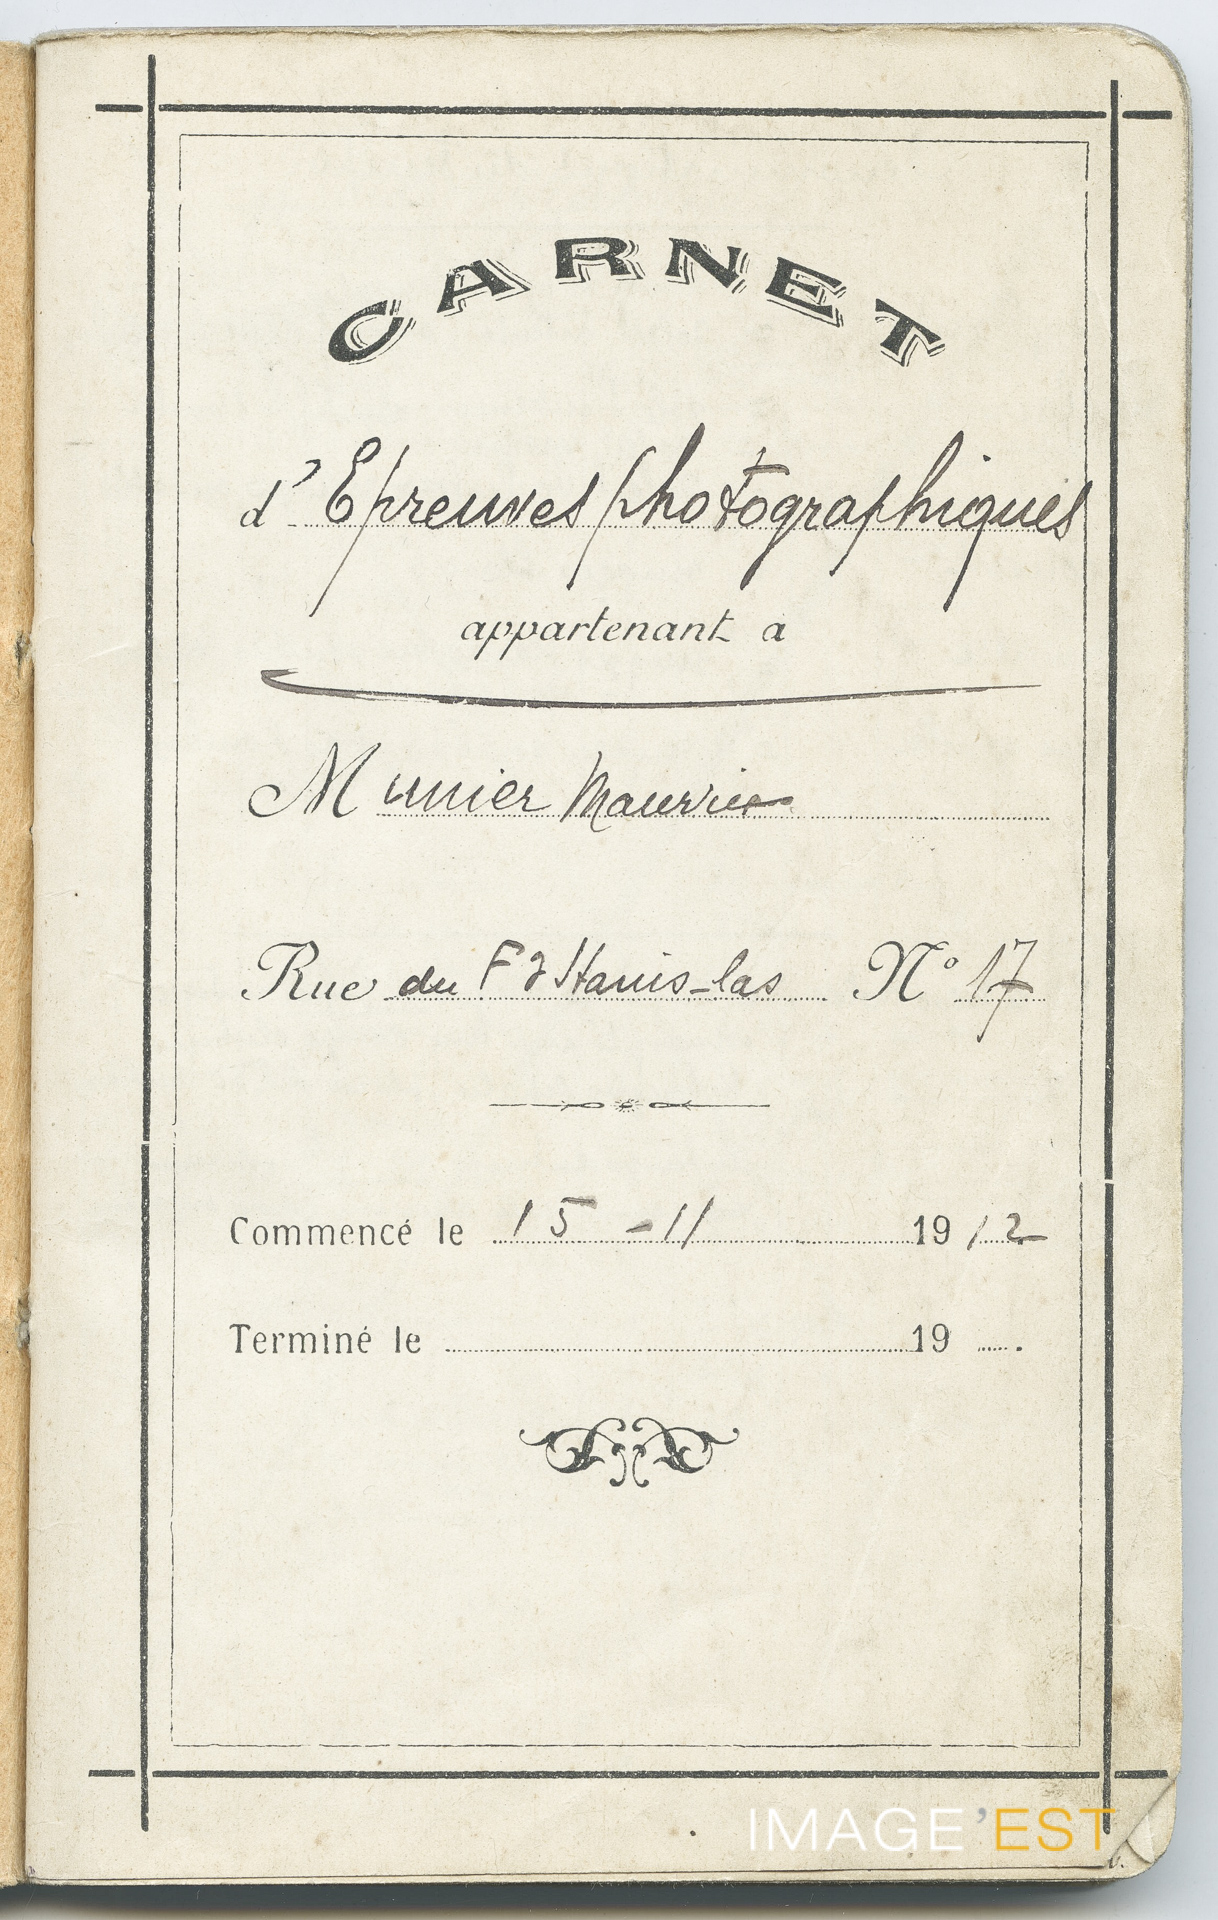 CARNET
d'Epreuves photographiques
appartenant a
Munier Maurice
Rue du Fg Stanis-las N° 17
Commencé le 15 - 11 1912
Terminé le 19
IMAGE'EST